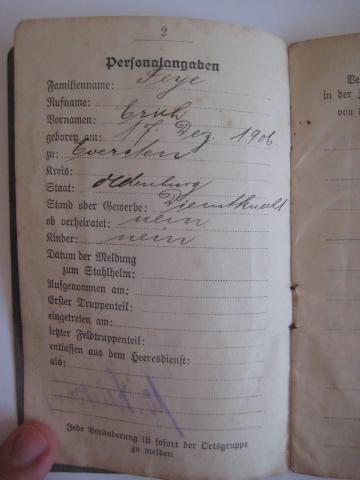 2
Personalangaben
Familienname: Feye
Rufname:
Vornamen: Erich
geboren am: 17. Dez. 1906
zu: Eversten
Kreis:
Staat: Oldenburg
Stand oder Gewerbe: Dienstknecht
ob verheiratet: nein
Kinder: nein
Datum der Meldung
zum Stahlhelm:
Aufgenommen am:
Erster Truppenteil:
eingetreten am:
letzter Feldtruppenteil:
entlassen aus dem Heeresdienst:
als:
Jede Veränderung ist sofort der Ortsgruppe
zu melden.
Ve
in der